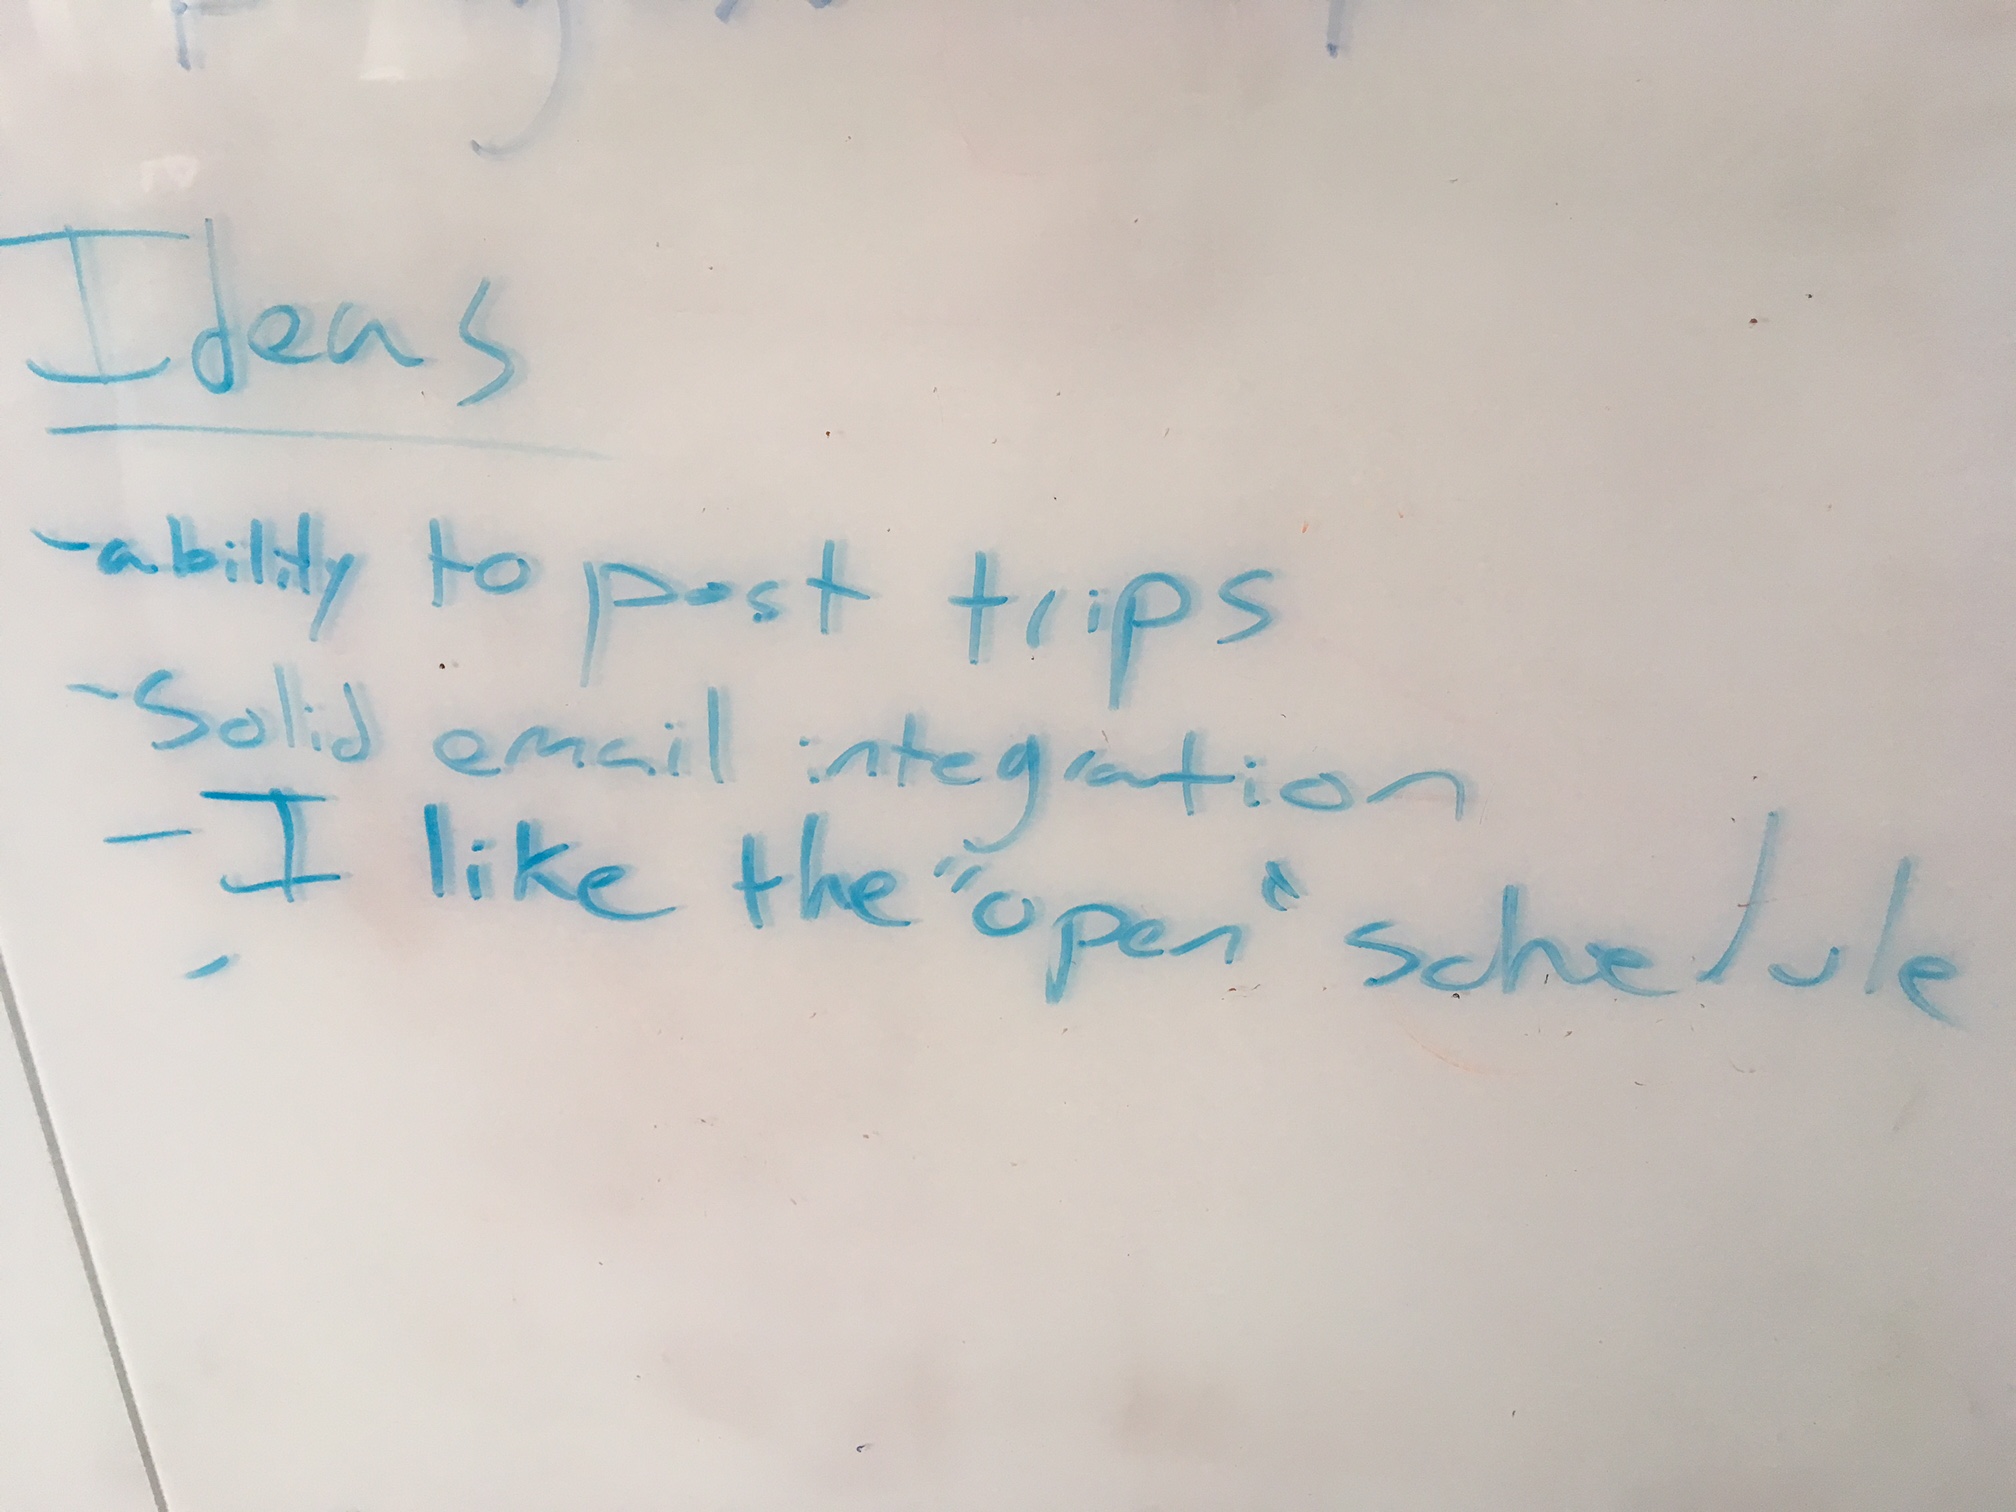 Ideas
-ability to post trips
-Solid email integration
-I like the "open" schedule
-